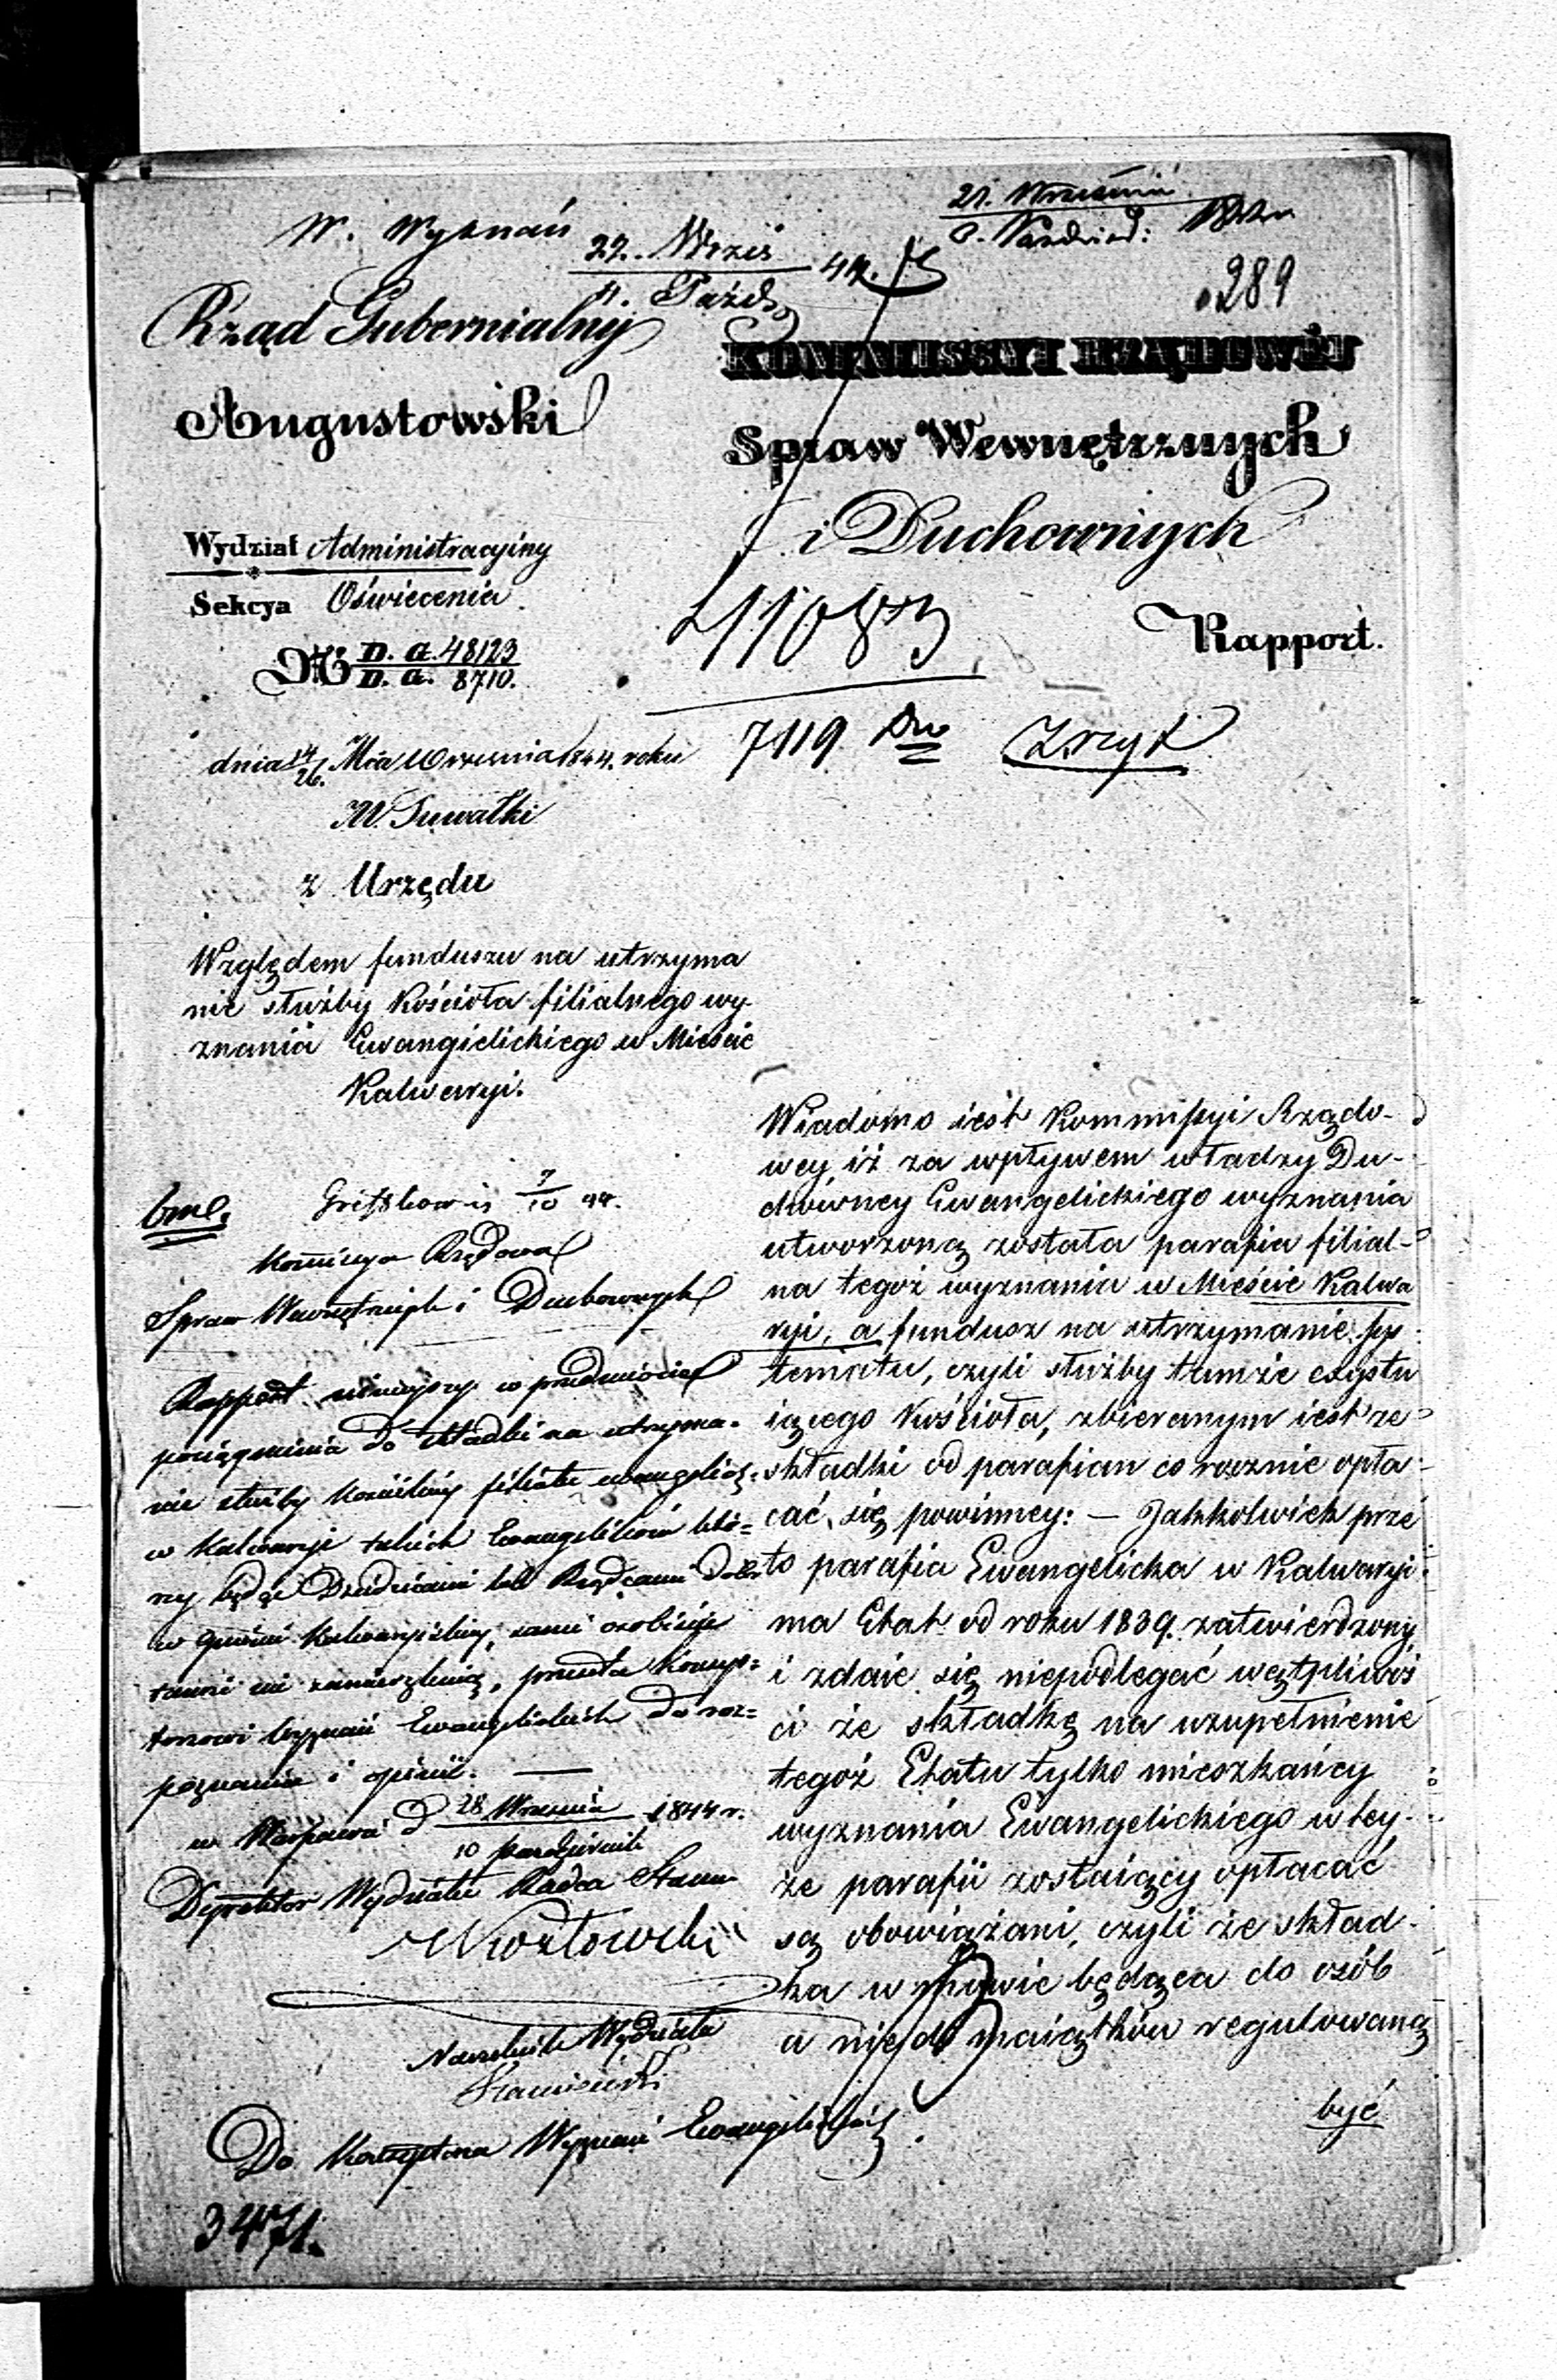 W. Wyznań
22. Wrześ
4. Paźdz 44.
21. Września
3. Październ: 1844
289
Rząd Gubernialny
Augustowski
Wydział Administracyiny
Sekcya Oświecenia
№ D. A. 48123
D. A. 8710.
dnia 14/26 Mca Września 1844. roku
W Suwałki
z Urzędu
Względem funduszu na utrzyma
nie służby Kościoła filialnego wy-
znania Ewangielickiego w Mieście
Kalwaryi.
KOMMISSYI RZĄDOWÉY
Spraw Wewnętrznych
i Duchownych
Rapport.
41083
7119
Wiadomo iest Kommissyi Rządo-
wey iż za wpływem władzy Du-
chówney Ewangelickiego wyznania
utworzoną została parafia filial-
na tegoż wyznania w Mieście Kalwa
ryi, a fundusz na utrzymanie sys
tematu, czyli służby tamże exystu
iącego Kościoła, zbieranym iest ze
składki od parafian co rocznie opła-
cać się powinney: — Jakkolwiek prze
to parafia Ewangelicka w Kalwaryi
ma Etat od roku 1839. zatwierdzony
i zdaie się niepodlegać wątpliwoś
ci że składkę na uzupełnienie
tegoż Etatu tylko mieszkańcy
wyznania Ewangelickiego w tey-
że parafii zostaiący opłacać
są obowiązani, czyli że skład-
ka w mowie będąca do osób
a nie do maiątków regulowaną
być
7/10 44.
Kommissya Rządowa
Spraw Wewnętrznych i Duchownych
Rapport ninieyszy w przedmiocie
pociągnienia do składki na utrzyma-
nie służby kościelney filiału ewangelick:
w Kalwaryi takich Ewangelików któ-
rzy będąc Dziedzicami lub Rządcami Dóbr
w Gminie Kalwaryiskiey, sami osobiście
tamże nie zamieszkuią, przesyła Konsys-
torzowi Wyznań Ewangelickich do roz-
poznania i opinii. —
w Warszawie d 28 Września 1844 r.
10 Października
Dyrektor Wydziału Radca Stanu
Naczelnik Wydziału
Do Konsystorza Wyznań Ewangelickich.
3471.